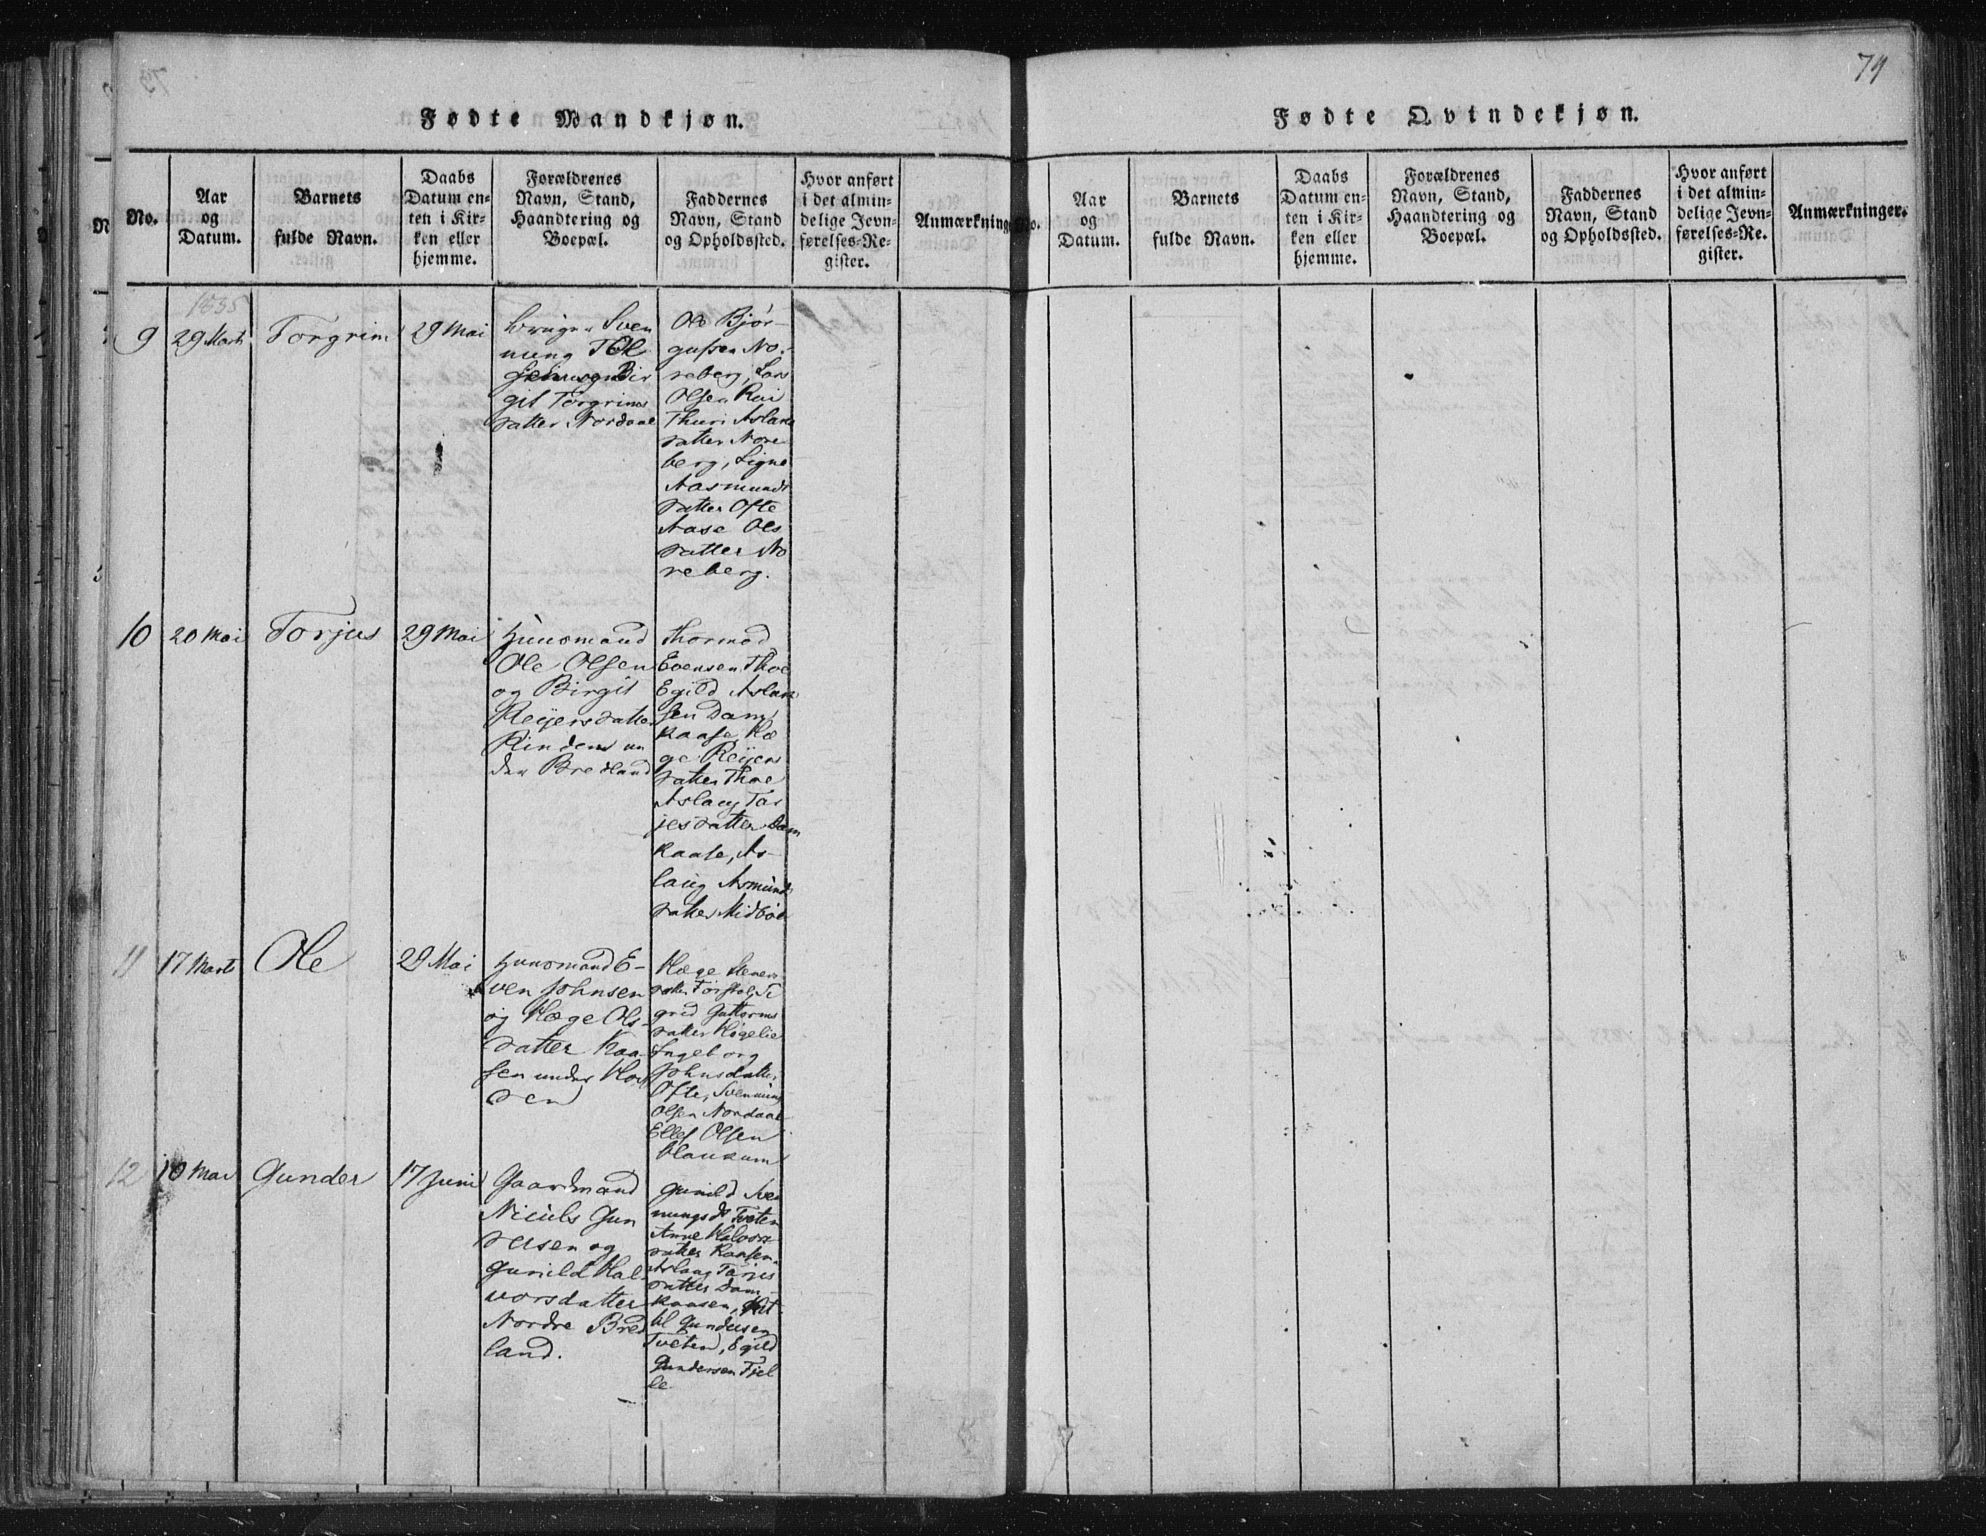 79
Fødte Mandkjøn.
No.
Aar
og
Datum.
Barnets
fulde Navn.
Daabs
Datum en-
ten i Kir-
ken eller
hjemme.
Forældrenes
Navn, Stand,
Haandtering og
Boepæl.
Faddernes
Navn, Stand
og Opholdssted.
Hvor anført
i det almin-
delige Jevn-
førelses-Re-
gister.
Anmærkninger
1835
9
29 Marts
Torgrim
29 Mai
Bruger Sven
nung
og Bir
git Torgrims
datter Nordaae
Ole Bjør-
gufsen No-
reberg, Lars
Olsen Rui
Thuri Aslaks
datter Nore
berg, Signe
Aasmunds
datter Ofte
Aase Ols
datter No
reberg.
10
20 Mai
Torjus
29 Mai
Huusmand
Ole Olsen
og Birgit
Reijersdatter
Rinden un
der Bredland
Thormod
Evensen Thoe
Egild Aslak
sen Dam
kaase, Hæ
ge Reijers
datter Thoe
Aslaug Tar
jesdatter Dam
kaase, As-
laug Asmunds
datter Midbøe
11
17 Marts
Ole
29 Mai
Huusmand E-
ven Johnsen
og Hæge Ols-
datter Kaa-
sen under
Hæge Steners
datter
grid Guttorms
datter Høgelie
Ingeborg
Johnsdatter
Ofte, Svennung
Olsen Nordaae
Ellef Olsen
Haukum
12
10 Mai
Gunder
17 Juni
Gaardmand
Niculs Gun
dersen og
Gunild Hal
vorsdatter
Nordre Bred
land.
Gunild Sve
nungsdr Tveten
Anne Halvors
datter Kaasen
Aslaug Tarjes
datter Dam-
kaasen, Kit
til Gundersen
Tveten, Egild
Gundersen Fjel
le
Fødte Qvindekjøn.
No.
Aar
og
Datum.
Barnets
fulde Navn.
Daabs
Datum en-
ten i Kir-
ken eller
hjemme.
Forældrenes
Navn, Stand,
Haandtering og
Boepæl.
Faddernes
Navn, Stand
og Opholdssted.
Hvor anført
i det almin-
delige Jevn-
førelses-Re-
gister.
Anmærkninger.